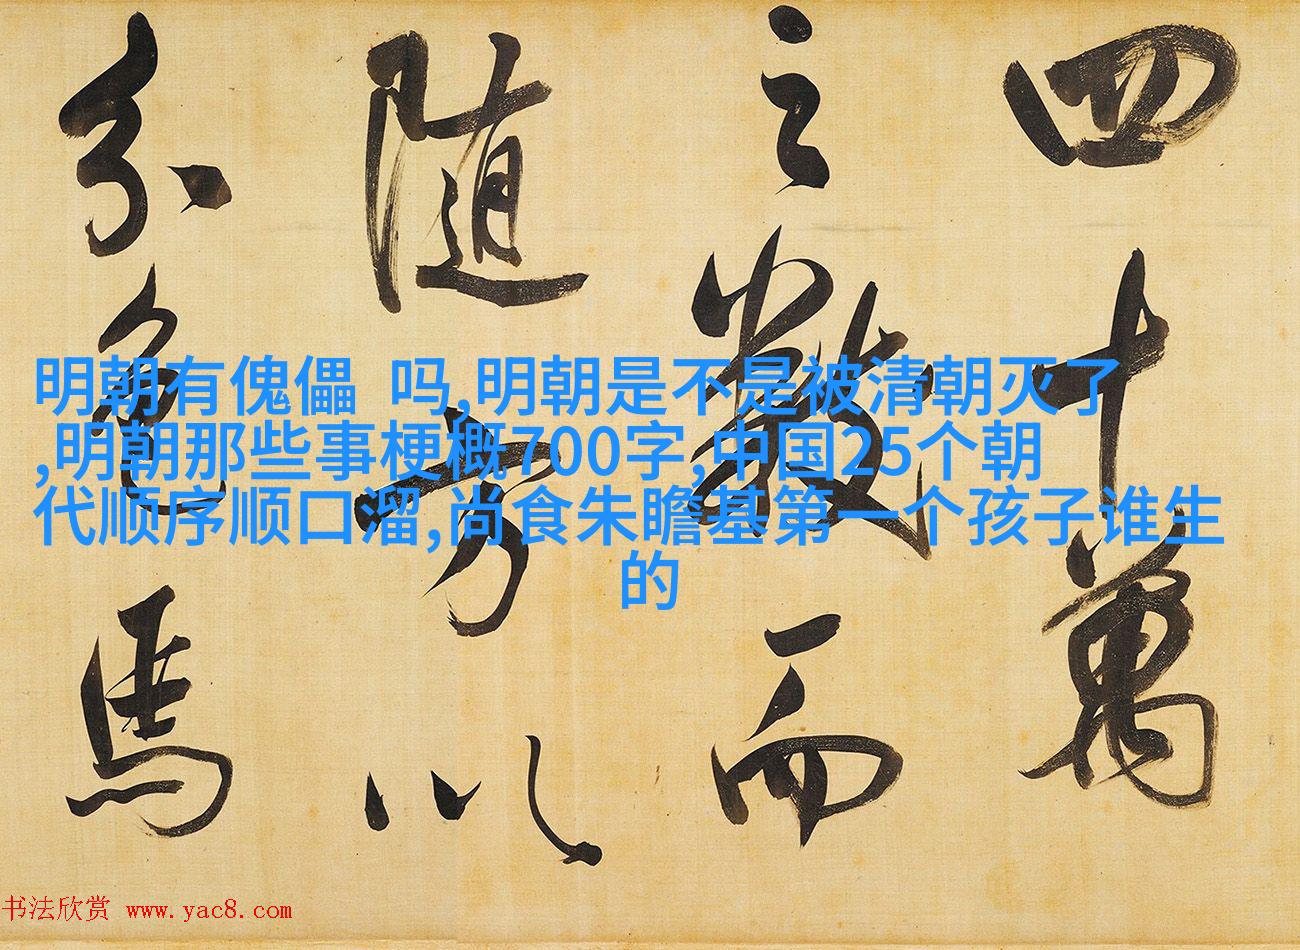 四十萬
之數而
随方以
分色馬
明朝有傀儡 吗,明朝是不是被清朝灭了
,明朝那些事梗概700字,中国25个朝
代顺序顺口溜,尚食朱瞻基第一个孩子谁生
的
书法欣赏 www.yac8.com